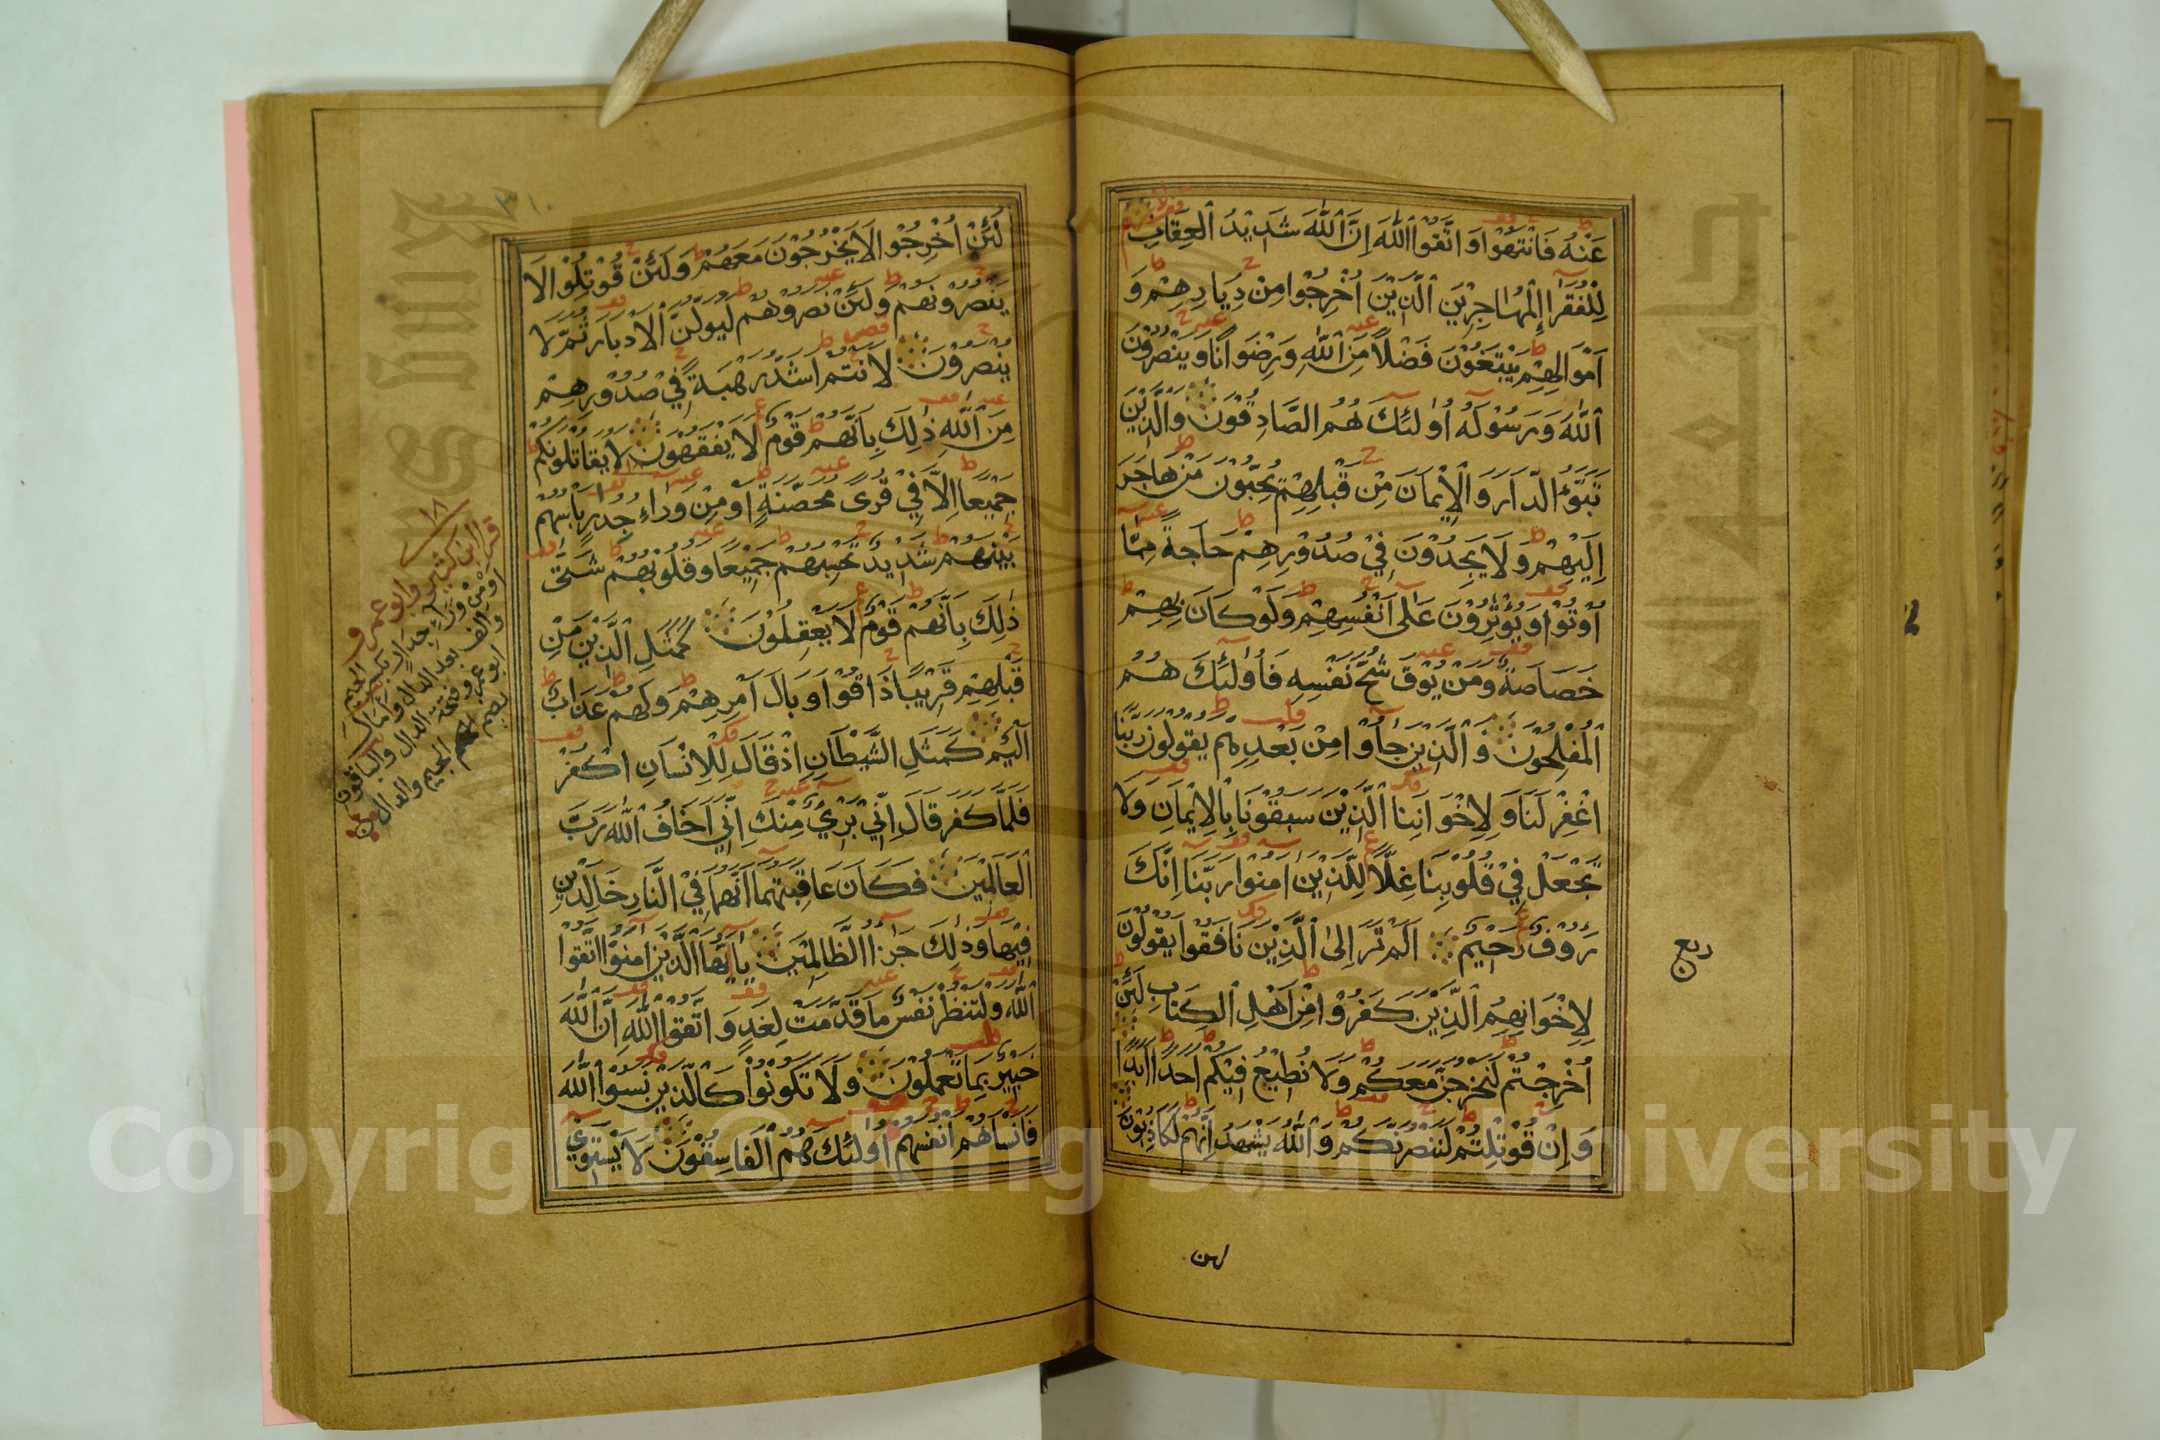 عَنْهُ فَانْتَهُوْا وَاتَّقُوا اللّٰهَ اِنَّ اللّٰهَ شَدِيْدُ الْعِقَابِ
لِلْفُقَرَاءِ الْمُهَاجِرِيْنَ الَّذِيْنَ اُخْرِجُوْا مِنْ دِيَارِهِمْ وَ
اَمْوَالِهِمْ يَبْتَغُوْنَ فَضْلًا مِّنَ اللّٰهِ وَرِضْوَانًا وَيَنْصُرُوْنَ
اللّٰهَ وَرَسُوْلَهُ اُولٰئِكَ هُمُ الصَّادِقُوْنَ وَالَّذِيْنَ
تَبَوَّءُ الدَّارَ وَالْاِيْمَانَ مِنْ قَبْلِهِمْ يُحِبُّوْنَ مَنْ هَاجَرَ
اِلَيْهِمْ وَلَا يَجِدُوْنَ فِيْ صُدُوْرِهِمْ حَاجَةً مِمَّا
اُوْتُوْا وَيُؤْثِرُوْنَ عَلٰى اَنْفُسِهِمْ وَلَوْ كَانَ بِهِمْ
خَصَاصَةٌ وَمَنْ يُوْقَ شُحَّ نَفْسِهِ فَاُولٰئِكَ هُمُ
الْمُفْلِحُوْنَ وَالَّذِيْنَ جَاؤُا مِنْ بَعْدِهِمْ يَقُوْلُوْنَ رَبَّنَا
اغْفِرْ لَنَا وَلِاِخْوَانِنَا الَّذِيْنَ سَبَقُوْنَا بِالْاِيْمَانِ وَلَا
تَجْعَلْ فِيْ قُلُوْبِنَا غِلًّا لِلَّذِيْنَ اٰمَنُوْا رَبَّنَا اِنَّكَ
رَءُوْفٌ رَحِيْمٌ اَلَمْ تَرَ اِلَى الَّذِيْنَ نَافَقُوْا يَقُوْلُوْنَ
لِاِخْوَانِهِمُ الَّذِيْنَ كَفَرُوْا مِنْ اَهْلِ الْكِتَابِ لَئِنْ
اُخْرِجْتُمْ لَنَخْرُجَنَّ مَعَكُمْ وَلَا نُطِيْعُ فِيْكُمْ اَحَدًا اَبَدًا
وَاِنْ قُوْتِلْتُمْ لَنَنْصُرَنَّكُمْ وَاللّٰهُ يَشْهَدُ اِنَّهُمْ لَكَاذِبُوْنَ
ربع
لئن
٣١٠
لَئِنْ اُخْرِجُوْا لَا يَخْرُجُوْنَ مَعَهُمْ وَلَئِنْ قُوْتِلُوْا لَا
يَنْصُرُوْنَهُمْ وَلَئِنْ نَصَرُوْهُمْ لَيُوَلُّنَّ الْاَدْبَارَ ثُمَّ لَا
يُنْصَرُوْنَ لَاَنْتُمْ اَشَدُّ رَهْبَةً فِيْ صُدُوْرِهِمْ
مِنَ اللّٰهِ ذٰلِكَ بِاَنَّهُمْ قَوْمٌ لَا يَفْقَهُوْنَ لَا يُقَاتِلُوْنَكُمْ
جَمِيْعًا اِلَّا فِيْ قُرًى مُحَصَّنَةٍ اَوْ مِنْ وَرَاءِ جُدُرٍ بَاْسُهُمْ
بَيْنَهُمْ شَدِيْدٌ تَحْسَبُهُمْ جَمِيْعًا وَقُلُوْبُهُمْ شَتّٰى
ذٰلِكَ بِاَنَّهُمْ قَوْمٌ لَا يَعْقِلُوْنَ كَمَثَلِ الَّذِيْنَ مِنْ
قَبْلِهِمْ قَرِيْبًا ذَاقُوْا وَبَالَ اَمْرِهِمْ وَلَهُمْ عَذَابٌ
اَلِيْمٌ كَمَثَلِ الشَّيْطَانِ اِذْ قَالَ لِلْاِنْسَانِ اكْفُرْ
فَلَمَّا كَفَرَ قَالَ اِنِّيْ بَرِيْءٌ مِنْكَ اِنِّيْ اَخَافُ اللّٰهَ رَبَّ
الْعَالَمِيْنَ فَكَانَ عَاقِبَتَهُمَا اَنَّهُمَا فِي النَّارِ خَالِدَيْنِ
فِيْهَا وَذٰلِكَ جَزٰؤُا الظَّالِمِيْنَ يٰاَيُّهَا الَّذِيْنَ اٰمَنُوا اتَّقُوا
اللّٰهَ وَلْتَنْظُرْ نَفْسٌ مَا قَدَّمَتْ لِغَدٍ وَاتَّقُوا اللّٰهَ اِنَّ اللّٰهَ
خَبِيْرٌ بِمَا تَعْمَلُوْنَ وَلَا تَكُوْنُوْا كَالَّذِيْنَ نَسُوا اللّٰهَ
فَاَنْسَاهُمْ اَنْفُسَهُمْ اُولٰئِكَ هُمُ الْفَاسِقُوْنَ لَا يَسْتَوِيْ
قرا ابن كثير وابو عمرو
او من وراء جدار بكسر الجيم
والف بعد الدال وامال
ابو عمرو فتحة الدال والباقون
بضم الجيم والدال
Copyright © King Saud University
جامعة الملك سعود